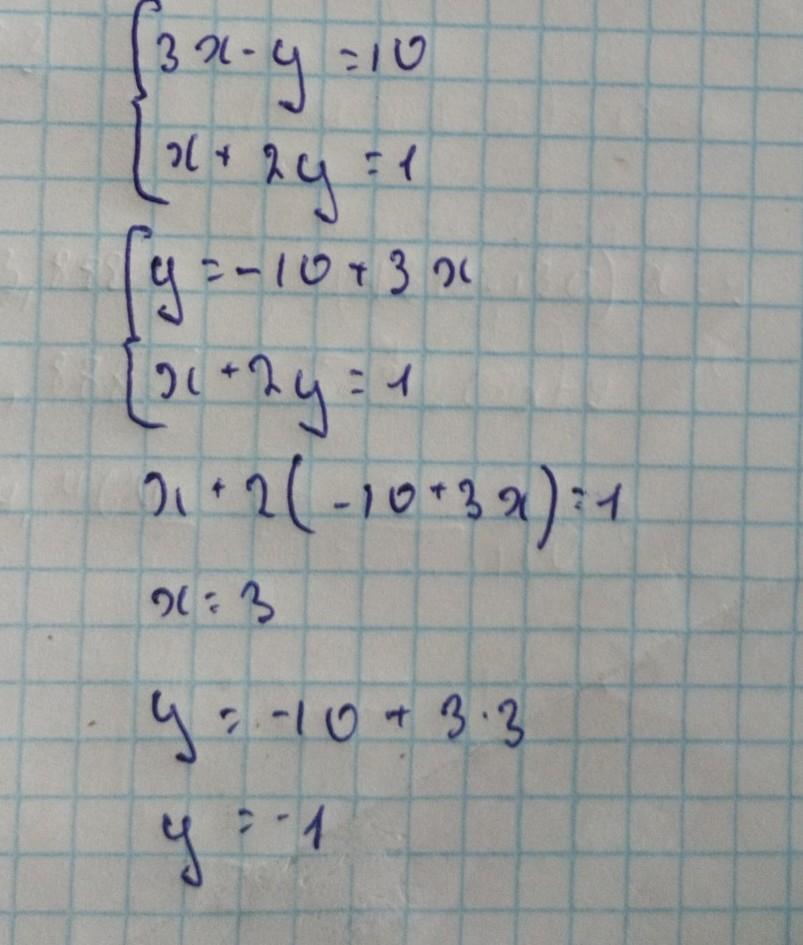 3x-y=10
x+2y=1
y=-10+3x
x+2y=1
x+2(-10+3x)=1
x=3
y=-10+3·3
y=-1